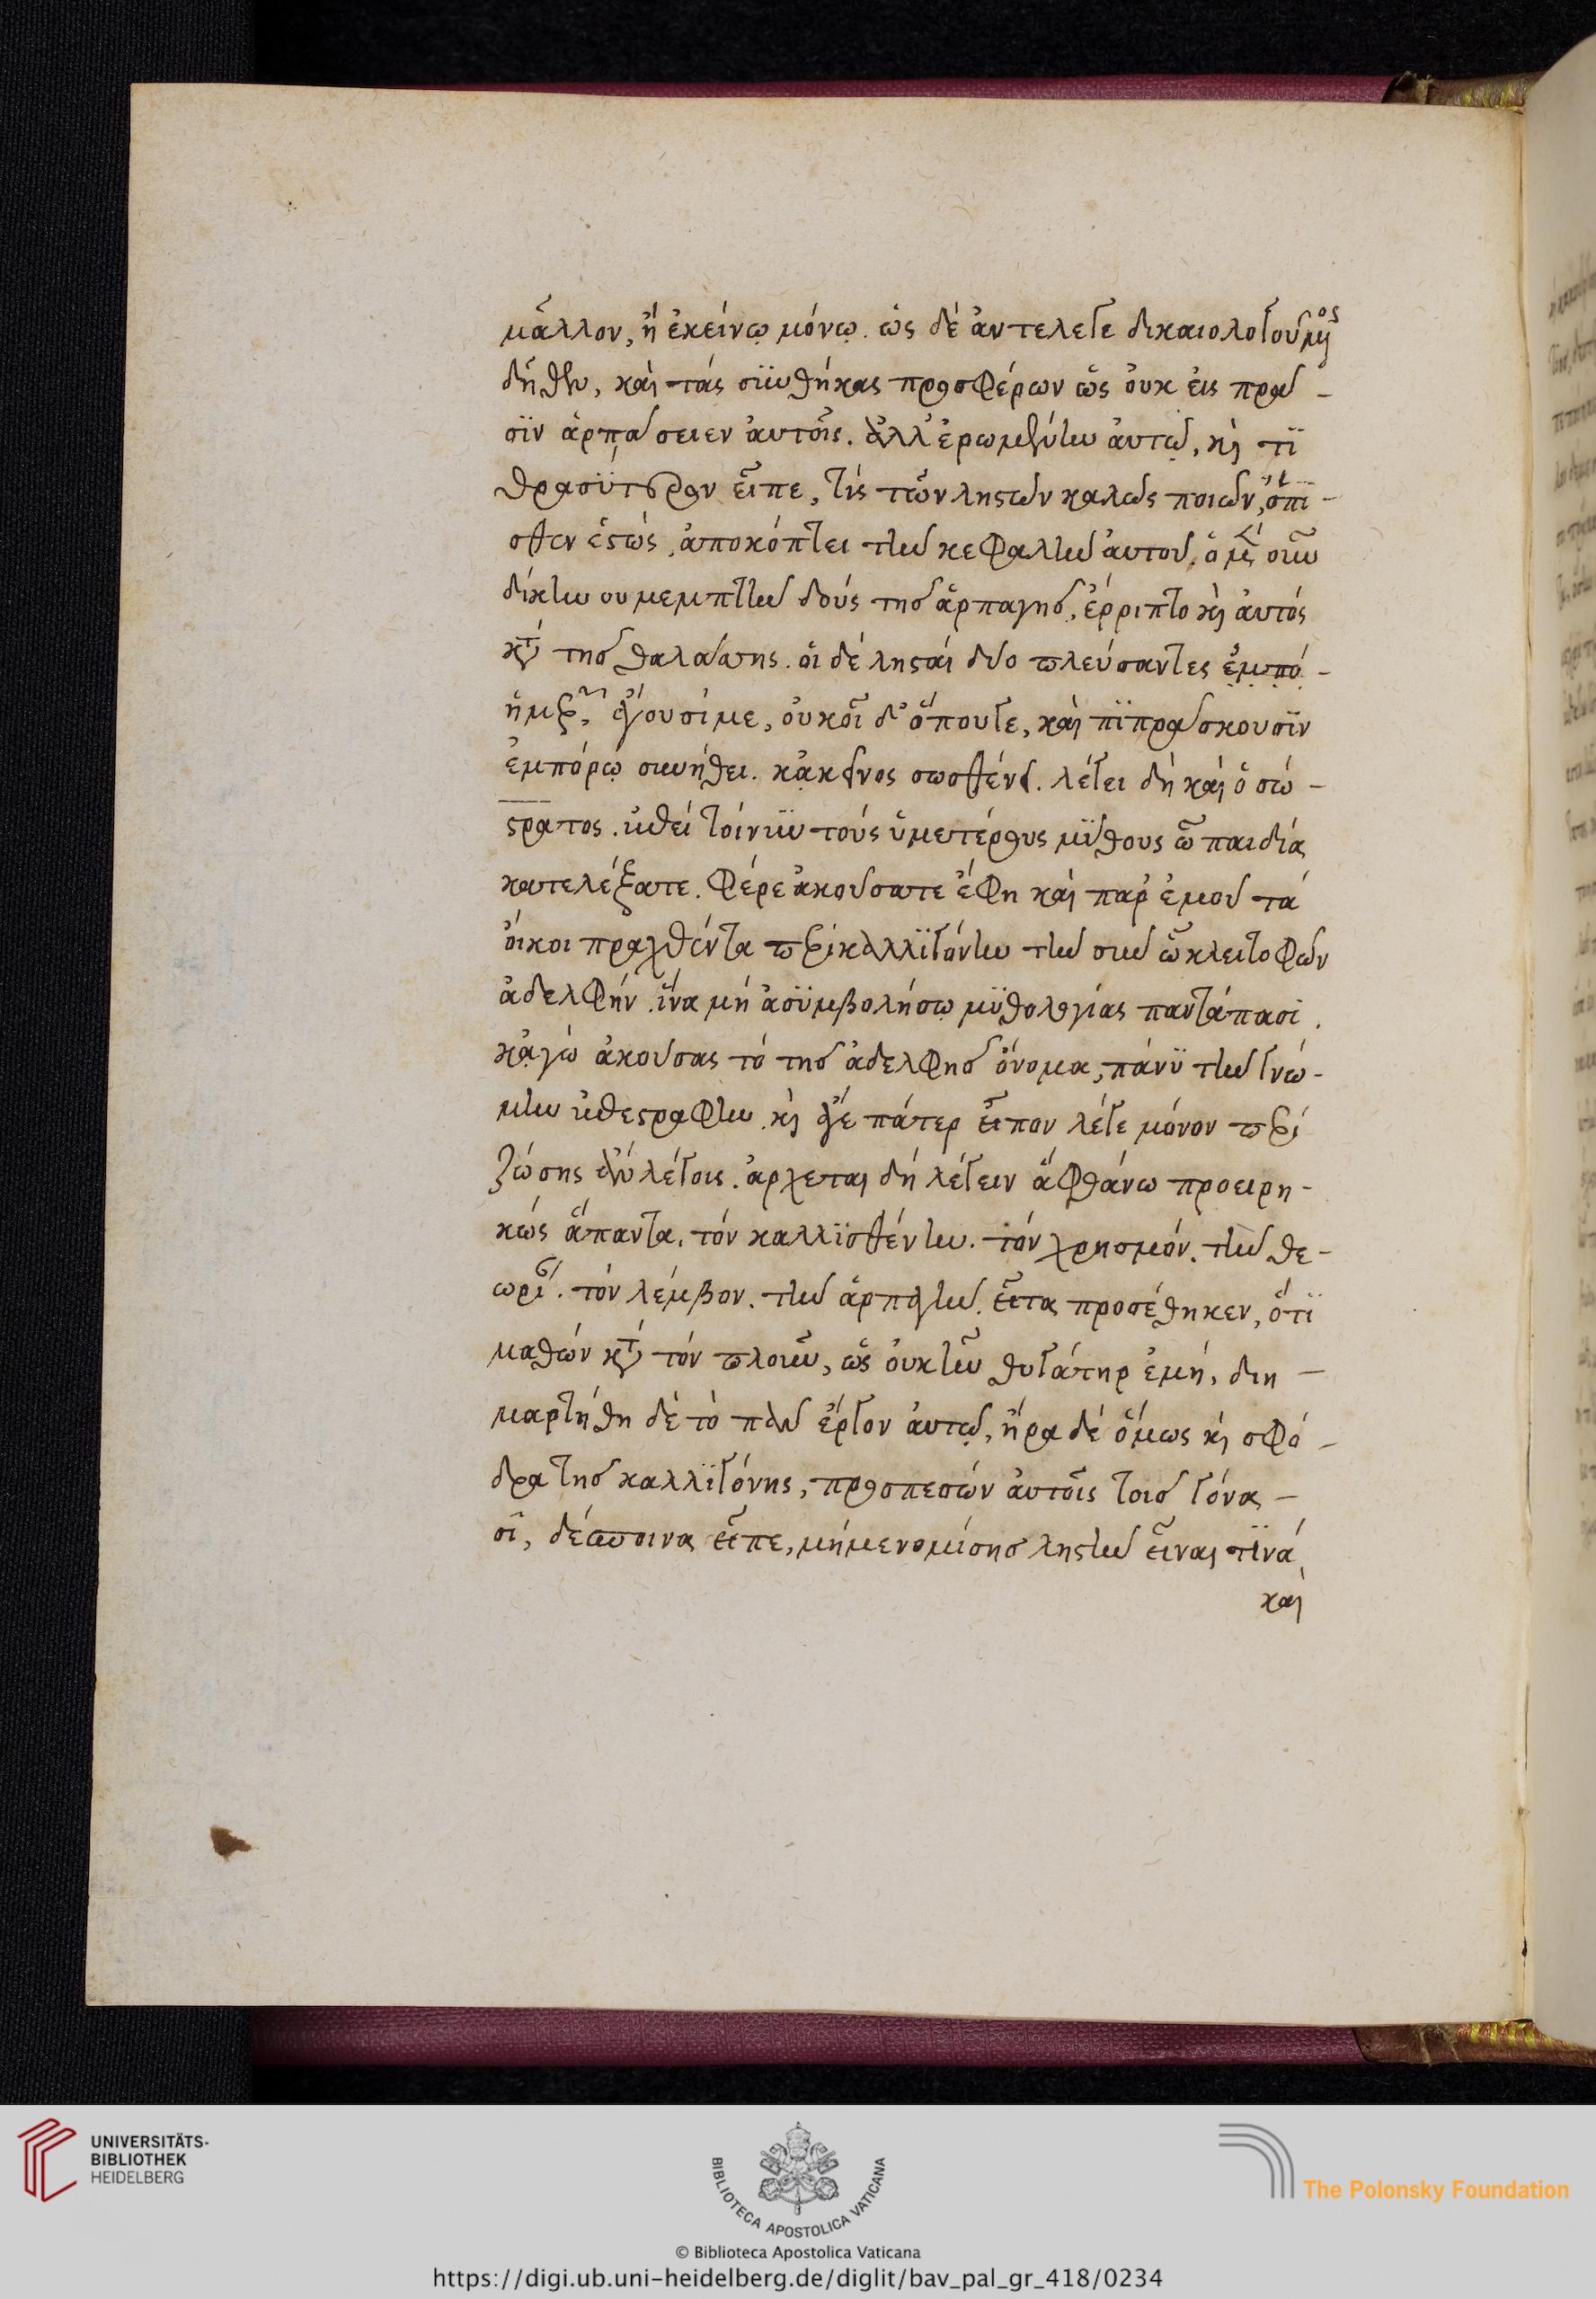 μᾶλλον, ἢ ἐκείνῳ μόνῳ. ὡς δὲ ἀντέλεγε δικαιολογούμενος
δῆθεν, καὶ τὰς συνθήκας προσφέρων ὡς οὐκ εἰς πρᾶ-
σιν ἁρπάσειεν αὐτοῖς. ἀλλ' ἐρωμένην αὐτῷ, καί τι
θρασύτερον εἶπε, τὶς τῶν λῃστῶν καλῶς ποιῶν, ὄπι-
σθεν ἑστὼς, ἀποκόπτει τὴν κεφαλὴν αὐτοῦ. ὁ μὲν οὖν
δίκην ου μεμπτὴν δοὺς τῆς ἁρπαγῆς, ἔρριπτο καὶ αὐτὸς
κατὰ τῆς θαλάσσης. οἱ δὲ λῃσταὶ δύο πλεύσαντες
ἡμερῶν, ἄγουσί με, οὐκ οἶδ' ὅπουγε, καὶ πιπράσκουσιν
ἐμπόρῳ συνήθει. κἀκεῖνος σωσθένει. λέγει δὴ καὶ ὁ σώ-
στρατος. ἐπεὶ τοίνυν τοὺς ὑμετέρους μύθους ὦ παιδία
κατελέξατε. φέρε ἀκούσατε ἔφη καὶ παρ' ἐμοῦ τὰ
οἴκοι πραχθέντα περὶ καλλιγόνην τὴν σὴν ὦ κλειτοφῶν
ἀδελφήν. ἵνα μὴ ἀσύμβολήσω μυθολογίας παντάπασι.
κἀγὼ ἀκούσας τὸ τῆς ἀδελφῆς ὄνομα, πάνυ τὴν γνώ-
μην ἐπεστράφην. καὶ ἄγε πάτερ εἶπον λέγε μόνον περὶ
ζώσης ἂν λέγοις. ἄρχεται δὴ λέγειν ἃ φθάνω προειρη-
κὼς ἅπαντα, τὸν καλλισθένην. τὸν χρησμόν. τὴν θε-
ωρίαν. τὸν λέμβον. τὴν ἁρπαγὴν. εἶτα προσέθηκεν, ὅτι
μαθὼν κατὰ τὸν πλοῦν, ὡς οὐκ ἦν θυγάτηρ ἐμή, διη-
μαρτήθη δὲ τὸ πᾶν ἔργον αὐτῷ, ἤρα δὲ ὅμως καὶ σφό-
δρα τῆς καλλιγόνης, προσπεσὼν αὐτοῖς τοῖς γόνα-
σι, δέσποινα εἶπε, μή με νομίσῃς λῃστὴν εἶναι τινὰ
καὶ
UNIVERSITÄTS-
BIBLIOTHEK
HEIDELBERG
BIBLIOTECA APOSTOLICA VATICANA
The Polonsky Foundation
© Biblioteca Apostolica Vaticana
https://digi.ub.uni-heidelberg.de/diglit/bav_pal_gr_418/0234